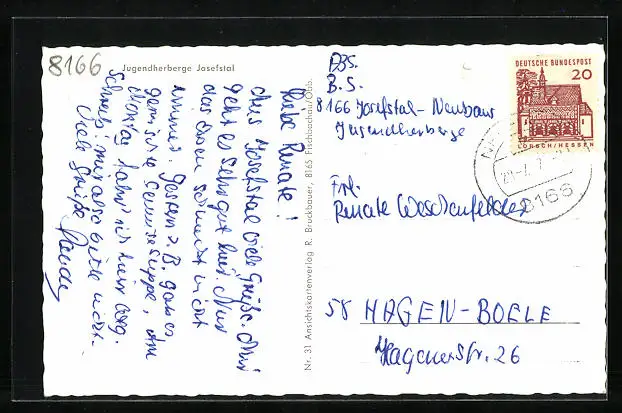 8166
Jugendherberge Josefstal
Liebe Renate!
Aus Josefstal viele Grüße. Mir
geht es sehr gut hier. Nur
das Essen schmeckt nicht
immer. Gestern z.B. gab es
gemischte Gemüsesuppe,
Montag fahr ich hier weg.
Schreib mir also bitte nicht.
Viele Grüße
Nr. 31 Ansichtskartenverlag R. Bruckbauer, 8165 Fischbachau/Obb.
Abs.
B. S.
8166 Josefstal-Neuhaus
Jugendherberge
Frl.
Renate Weschenfelder
58 HAGEN-BOELE
Hagenerstr. 26
DEUTSCHE BUNDESPOST
20
LORSCH/HESSEN
8166